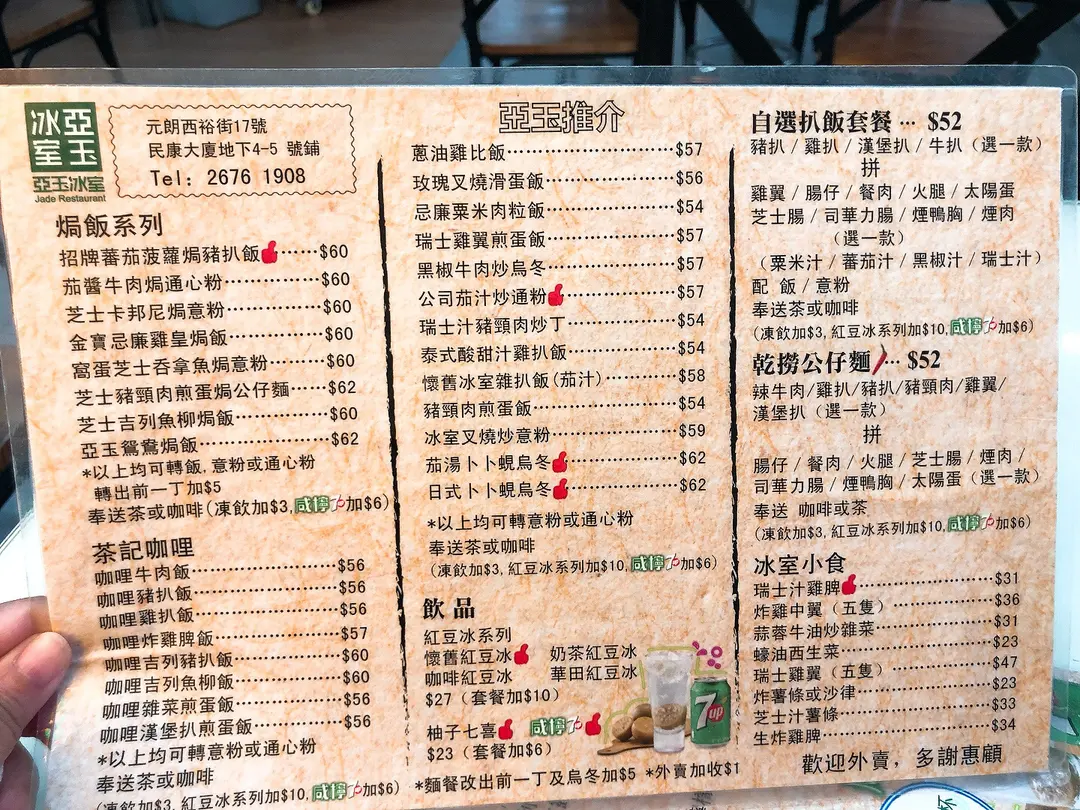 亞玉
冰室
亞玉冰室
Jade Restaurant
元朗西裕街17號
民康大廈地下4-5 號鋪
Tel: 2676 1908
焗飯系列
招牌蕃茄菠蘿焗豬扒飯……$60
茄醬牛肉焗通心粉……$60
芝士卡邦尼焗意粉……$60
金寶忌廉雞皇焗飯……$60
窩蛋芝士吞拿魚焗意粉……$60
芝士豬頸肉煎蛋焗公仔麵……$62
芝士吉列魚柳焗飯……$60
亞玉鴛鴦焗飯……$62
*以上均可轉飯,意粉或通心粉
轉出前一丁加$5
奉送茶或咖啡(凍飲加$3,咸檸7加$6)
茶記咖喱
咖喱牛肉飯……$56
咖喱豬扒飯……$56
咖喱雞扒飯……$56
咖喱炸雞脾飯……$57
咖喱吉列豬扒飯……$60
咖喱吉列魚柳飯……$60
咖喱雜菜煎蛋飯……$56
咖喱漢堡扒煎蛋飯……$56
*以上均可轉意粉或通心粉
奉送茶或咖啡
(凍飲加$3,紅豆冰系列加$10,咸檸7加$6)
亞玉推介
蔥油雞比飯……$57
玫瑰叉燒滑蛋飯……$56
忌廉粟米肉粒飯……$54
瑞士雞翼煎蛋飯……$57
黑椒牛肉炒烏冬……$57
公司茄汁炒通粉……$57
瑞士汁豬頸肉炒丁……$54
泰式酸甜汁雞扒飯……$54
懷舊冰室雜扒飯(茄汁)……$58
豬頸肉煎蛋飯……$54
冰室叉燒炒意粉……$59
茄湯卜卜蜆烏冬……$62
日式卜卜蜆烏冬……$62
*以上均可轉意粉或通心粉
奉送茶或咖啡
(凍飲加$3,紅豆冰系列加$10,咸檸7加$6)
飲品
紅豆冰系列
懷舊紅豆冰 奶茶紅豆冰
咖啡紅豆冰 華田紅豆冰
$27（套餐加$10）
柚子七喜 咸檸7
$23（套餐加$6）
7up
*麵餐改出前一丁及烏冬加$5 *外賣加收$1
自選扒飯套餐… $52
豬扒/雞扒/漢堡扒/牛扒（選一款）
拼
雞翼/腸仔/餐肉/火腿/太陽蛋
芝士腸/司華力腸/煙鴨胸/煙肉
（選一款）
（粟米汁/蕃茄汁/黑椒汁/瑞士汁）
配 飯/意粉
奉送茶或咖啡
(凍飲加$3,紅豆冰系列加$10,咸檸7加$6)
乾撈公仔麵… $52
辣牛肉/雞扒/豬扒/豬頸肉/雞翼/
漢堡扒（選一款）
拼
腸仔/餐肉/火腿/芝士腸/煙肉/
司華力腸/煙鴨胸/太陽蛋（選一款）
奉送 咖啡或茶
(凍飲加$3,紅豆冰系列加$10,咸檸7加$6)
冰室小食
瑞士汁雞脾……$31
炸雞中翼（五隻）……$36
蒜蓉牛油炒雜菜……$31
蠔油西生菜……$23
瑞士雞翼（五隻）……$47
炸薯條或沙律……$23
芝士汁薯條……$33
生炸雞脾……$34
歡迎外賣，多謝惠顧